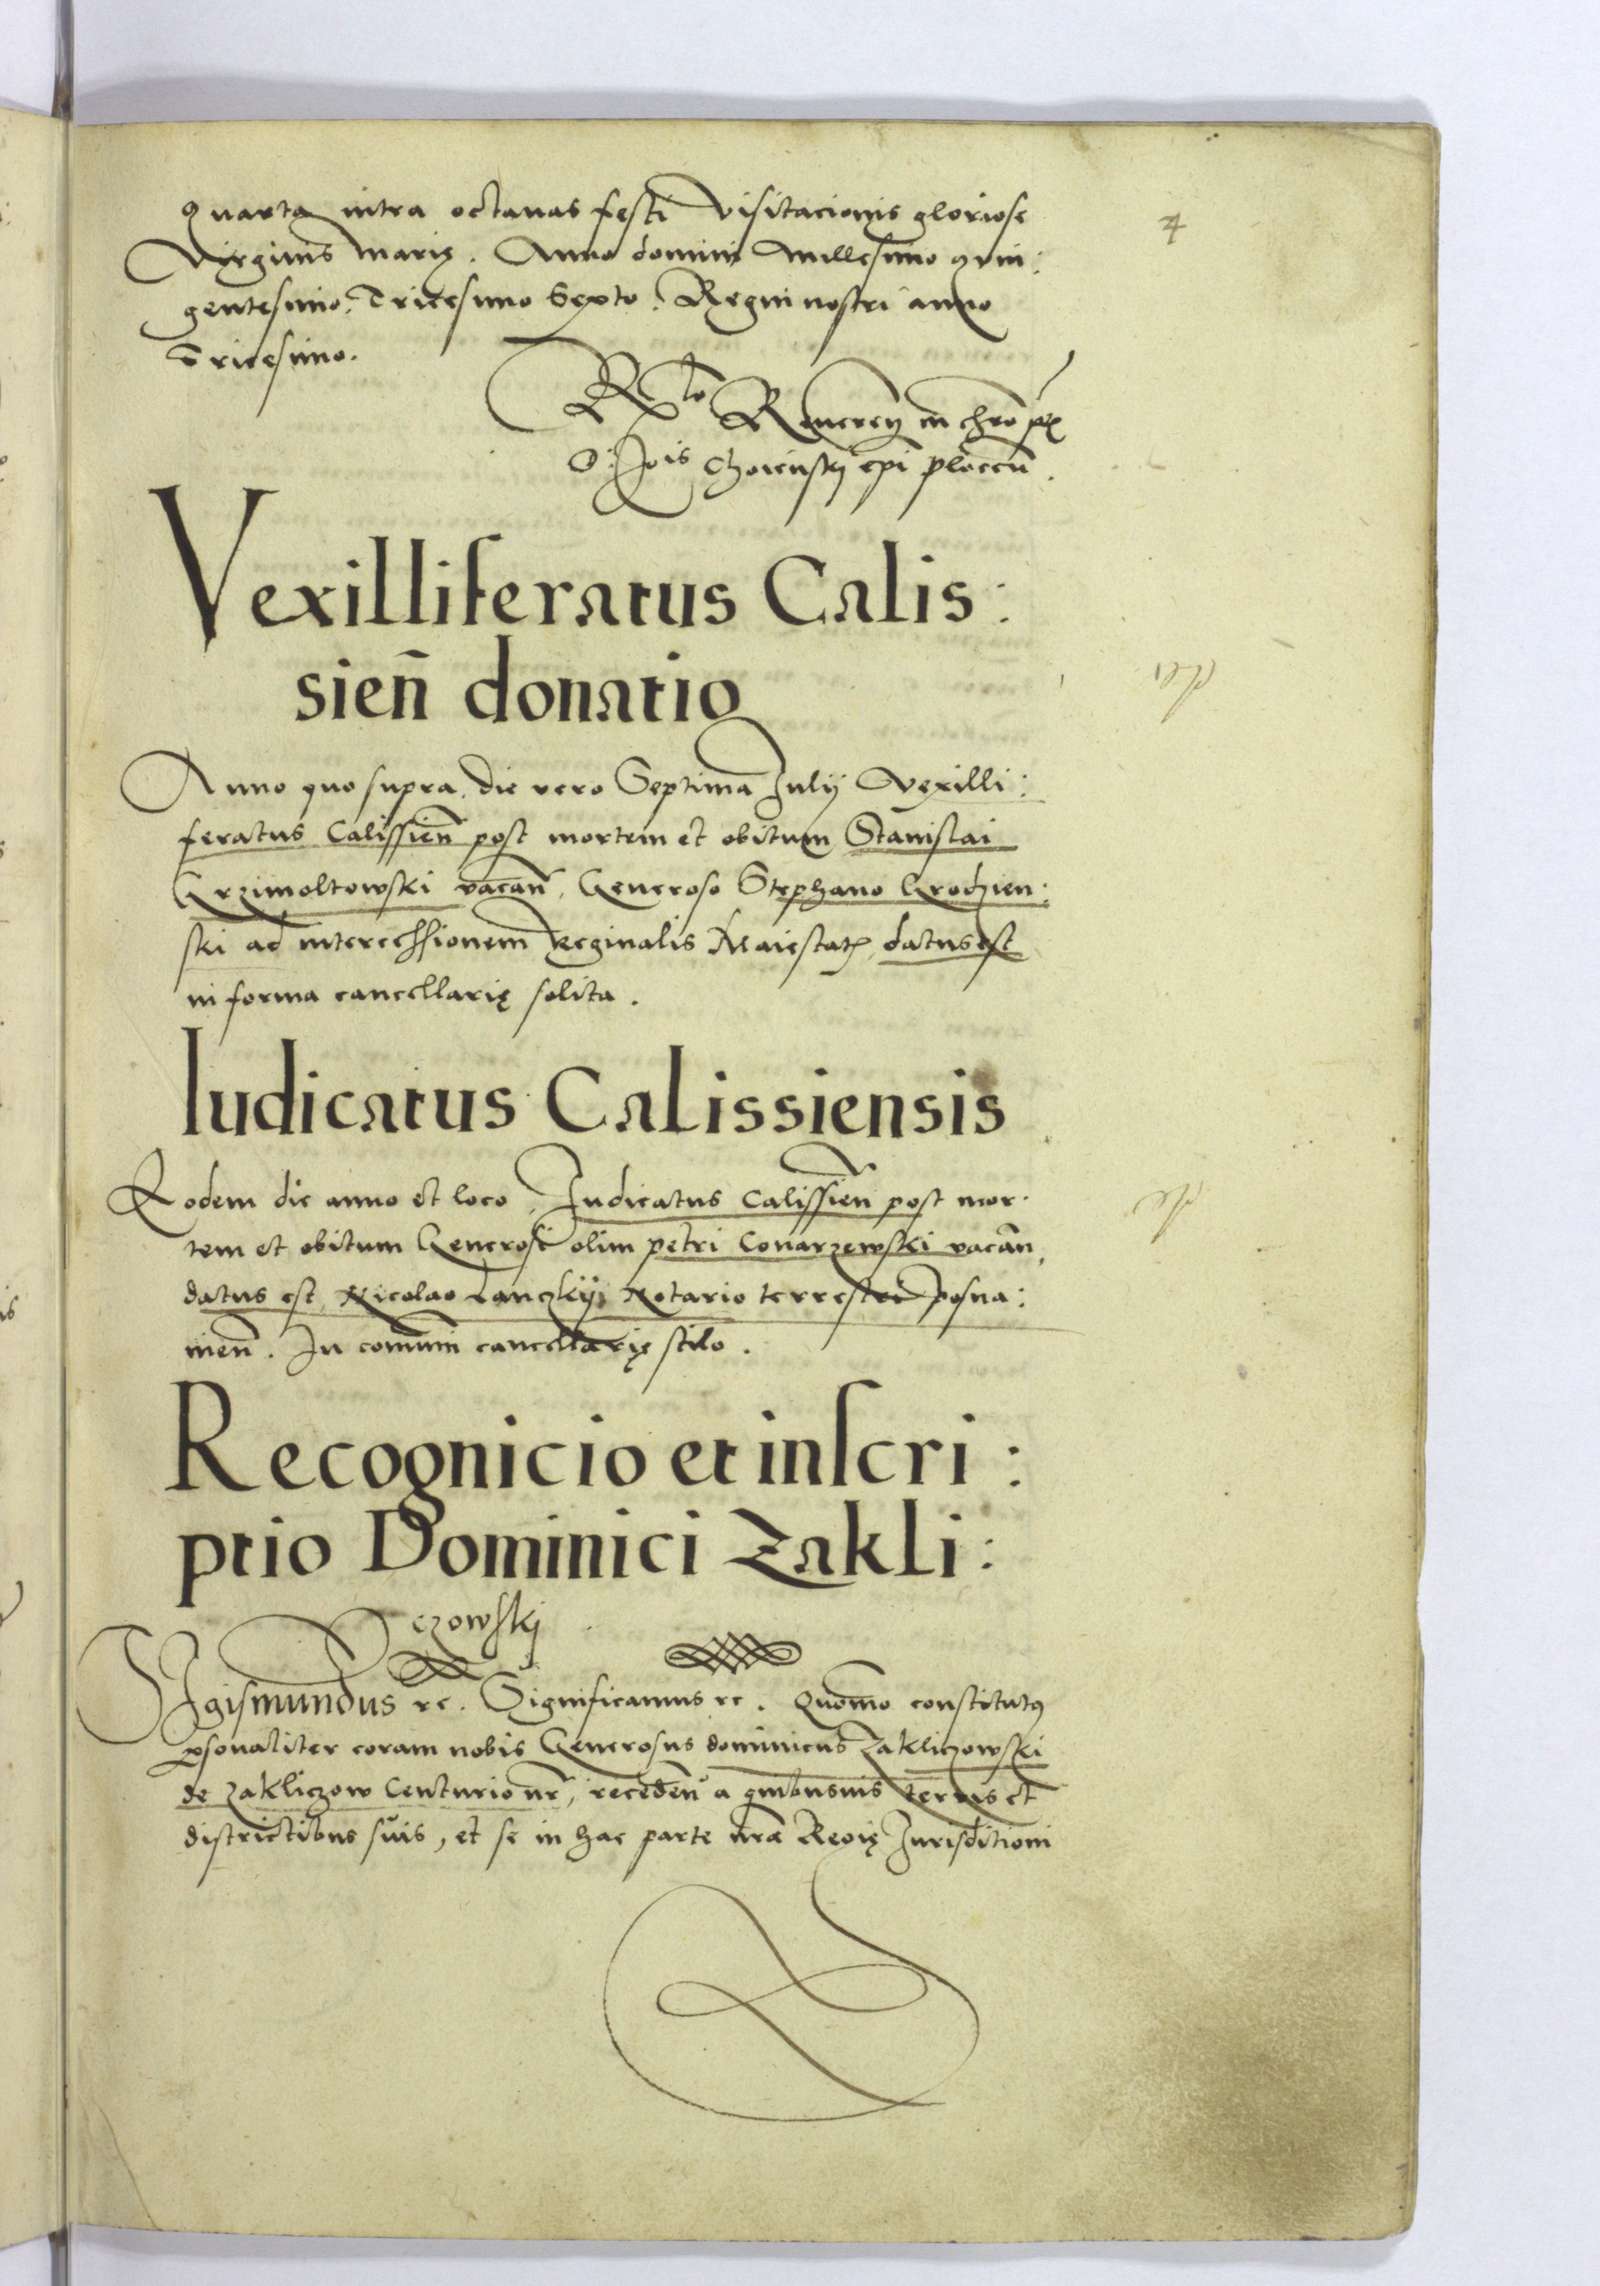 quarta intra octauas festi Visitacionis gloriose
4
Virginis Marię. Anno domini Millesimo quin:
gentesimo. Tricesimo Sexto. Regni nostri anno
Tricesimo.
Rlo Reueren in chro pr̃
D. Jois Choiensky epi plocen̄.
Vexilliferatus Calis:
sien̄ donatio
Anno quo supra, die vero Septima Julij Vexilli:
feratus Calissien̄ post mortem et obitum Stanislai
Krzimoltowski vacan̄, Generoso Stephano Grodzien:
ski ad intercessionem Reginalis Maiestatis, datus est
in forma cancellarię solita.
Iudicatus Calissiensis
Eodem die anno et loco, Judicatus Calissien̄ post mor:
tem et obitum Generosi olim petri Conarzewski vacan̄,
datus est Nicolao Lanczkij Notario terrestri posna:
nien̄. In comuni cancellarię stilo.
Recognicio et inscri:
ptio Dominici Zakli:
czowskj
Sigismundus rc. Significamus rc. Quomo constitutus
psonaliter coram nobis Generosus dominicus Zakliczowski
de Zakliczow Centurio nr̄, receden̄ a quibusuis terris et
districtibus suis, et se in hac parte nrae Regię Jurisditioni